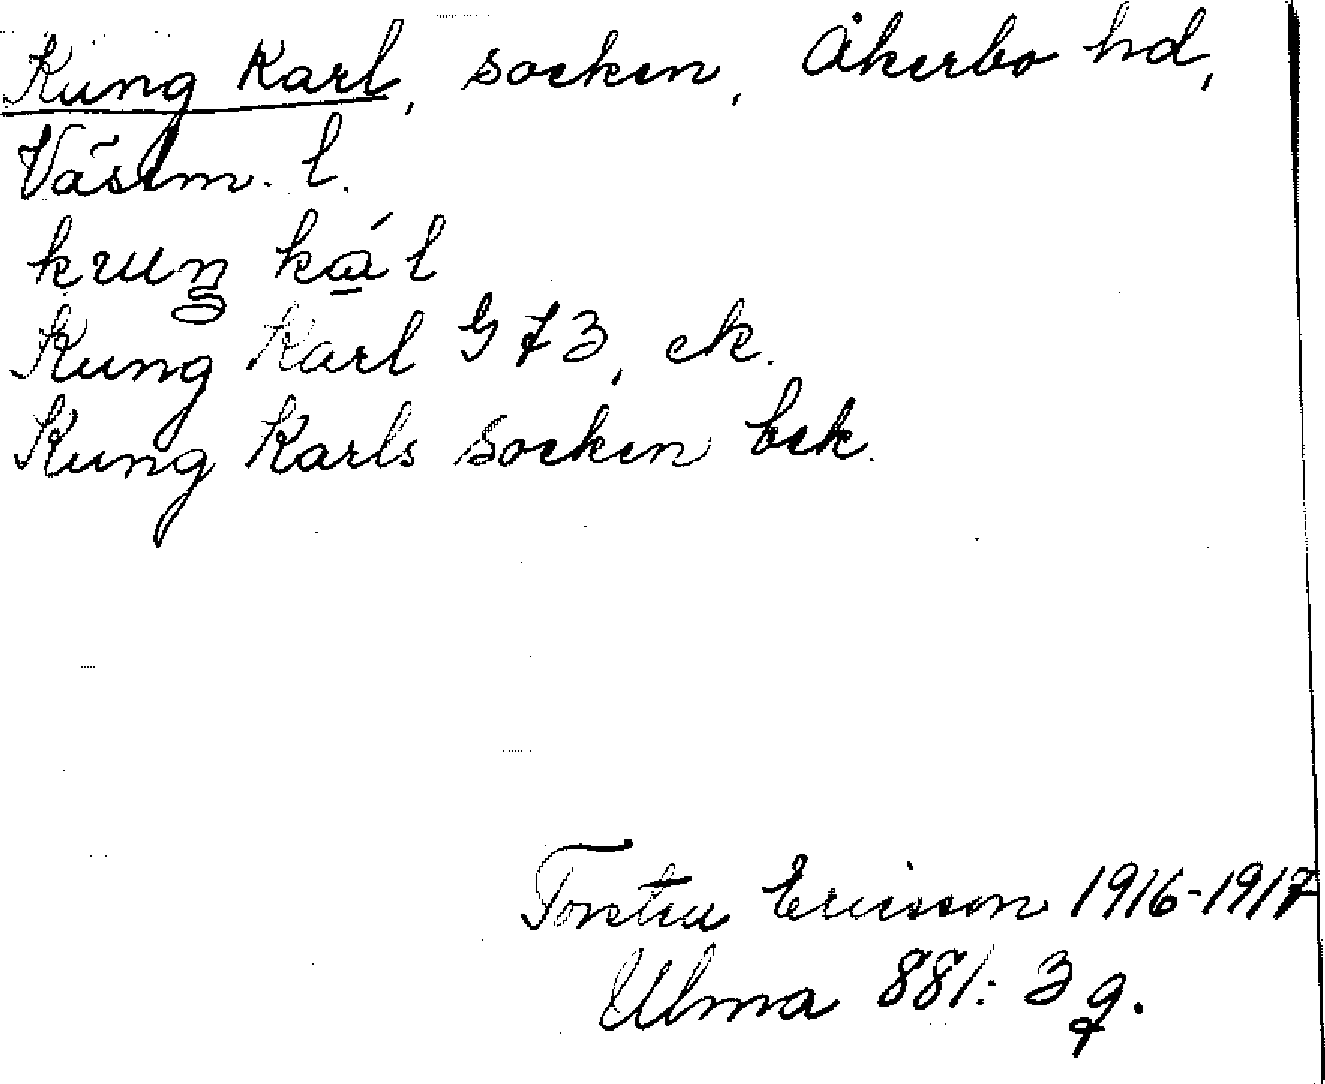 Kung Karl, socken, Åkerbo hd,
Västm. l.
kuŋ ká̲l
Kung Karl G 73, ek.
Kung Karls socken bek.
Torsten Ericsson 1916-1917
Ulma 881: 3 q.